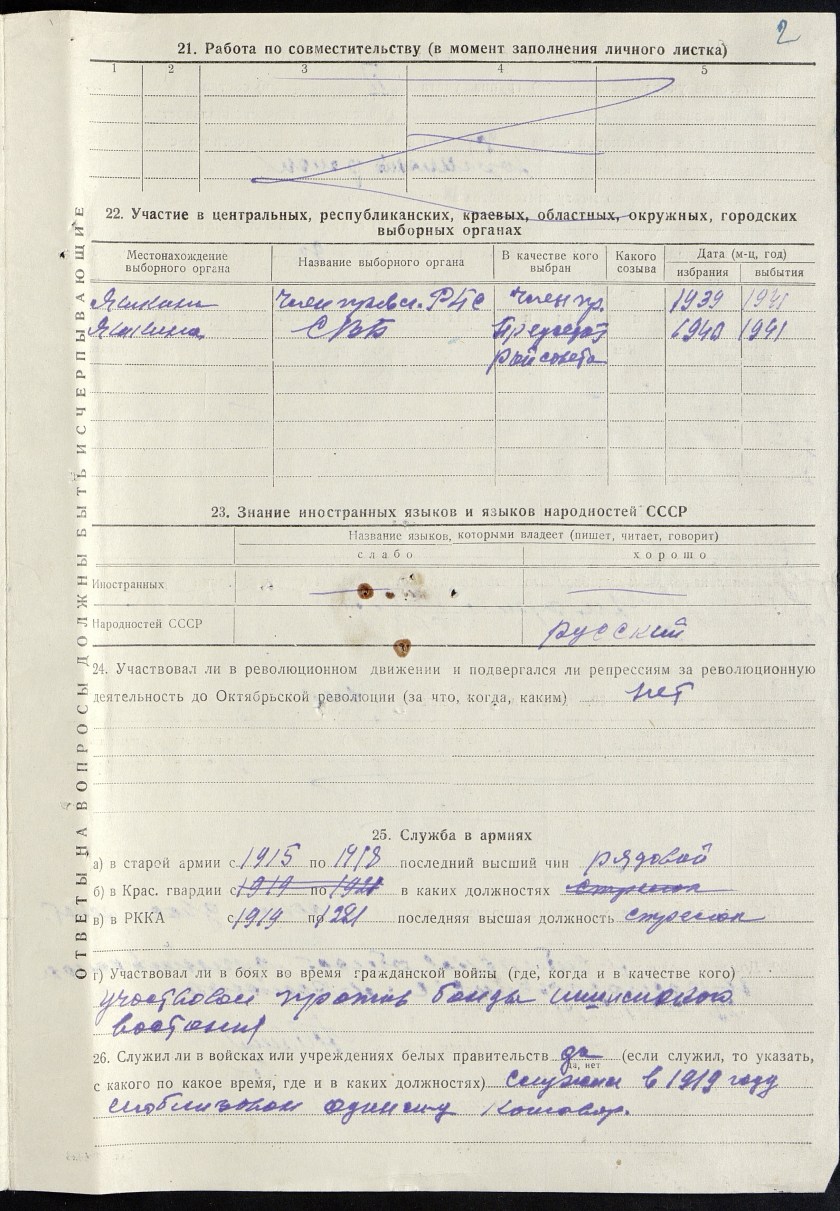 2
21. Работа по совместительству (в момент заполнения личного листка)
1 2 3 4 5
22. Участие в центральных, республиканских, краевых, областных, окружных, городских
выборных органах
Местонахождение выборного органа Название выборного органа В качестве кого выбран Какого созыва Дата (м-ц, год)
избрания выбытия
член правл. РПС член пр. 1939 1941
СВБ Председат 1940 1941
райсовета
23. Знание иностранных языков и языков народностей СССР
Название языков, которыми владеет (пишет, читает, говорит)
слабо хорошо
Иностранных
Народностей СССР русский
24. Участвовал ли в революционном движении и подвергался ли репрессиям за революционную
деятельность до Октябрьской революции (за что, когда, каким) нет
25. Служба в армиях
а) в старой армии с 1915 по 1918 последний высший чин рядовой
б) в Крас. гвардии с 1919 по 1921 в каких должностях стрелок
в) в РККА с 1919 по 1921 последняя высшая должность стрелок
г) Участвовал ли в боях во время гражданской войны (где, когда и в качестве кого)
участвовал против банды
востания
26. Служил ли в войсках или учреждениях белых правительств да (если служил, то указать,
да, нет
с какого по какое время, где и в каких должностях) служил в 1919 году
ОТВЕТЫ НА ВОПРОСЫ ДОЛЖНЫ БЫТЬ ИСЧЕРПЫВАЮЩИЕ